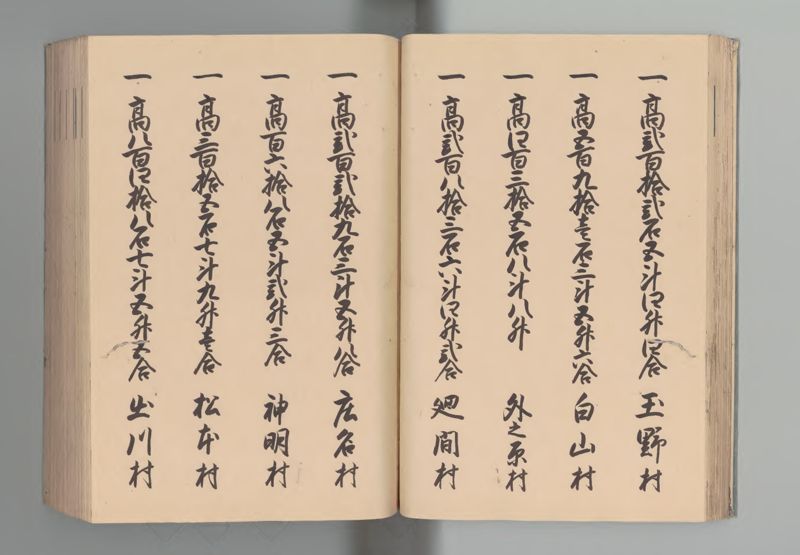 一 高弐百拾弐石五斗四升四合 玉野村
一 高五百九拾壱石三斗五升六合 白山村
一 高四百三拾五石八斗八升 外之原村
一 高弐百八拾三石六斗四升弐合 廻間村
一 高弐百弐拾九石三斗五升八合 庄名村
一 高百六拾八石五斗弐升三合 神明村
一 高三百拾五石七斗九升壱合 松本村
一 高八百四拾八石七斗五升五合 出川村